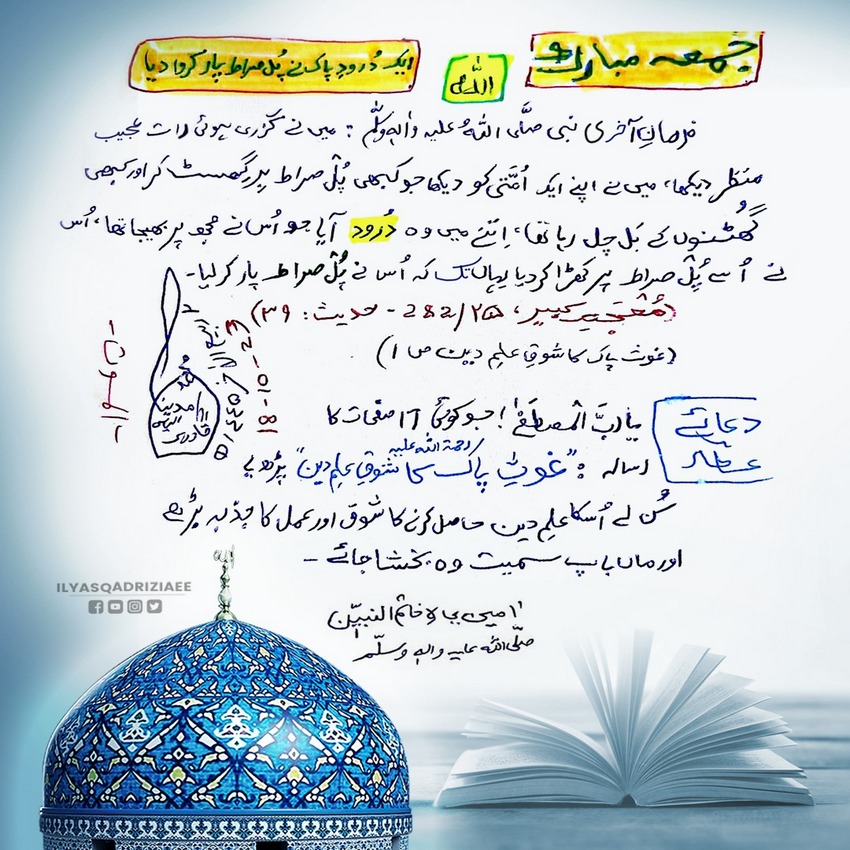 جمعہ مبارک
اللہ
ایک دُرودِ پاک نے پُل صراط پار کروا دیا
فرمانِ آخری نبی صلَّی اللہُ علیہ واٰلہٖ وسلَّم : میں نے گزری ہوئی رات عجیب
منظر دیکھا، میں نے اپنے ایک اُمَّتی کو دیکھا جو کبھی پُل صراط پر گِھسٹ کر اور کبھی
گُھٹنوں کے بَل چل رہا تھا، اِتنے میں وہ دُرود آیا جو اُس نے مجھ پر بھیجا تھا، اُس
نے اُسے پُل صراط پر کھڑا کردیا یہاں تک کہ اُس نے پُل صراط پار کرلیا۔
(مُعْجَمِ کبیر، ۲۵/282 - حدیث: ۳۹)
(غوث پاک کا شوقِ علمِ دین ص ۱)
محمد
الیاس
قادری
دعائے
عطار
یا ربَّ المصطفٰے! جو کوئی ۱۷ صفحات کا
رسالہ : "غوثِ پاک رحمۃ اللہ علیہ کا شوقِ علمِ دین" پڑھ یا
سُن لے اُسکو علمِ دین حاصل کرنے کا شوق اور عمل کا جذبہ دے
اور ماں باپ سمیت وہ بخشا جائے ۔
اٰمین بجاہِ خاتم النبیّن
صلَّی اللہ علیہ واٰلہٖ وسلَّم
ILYASQADRIZIAEE